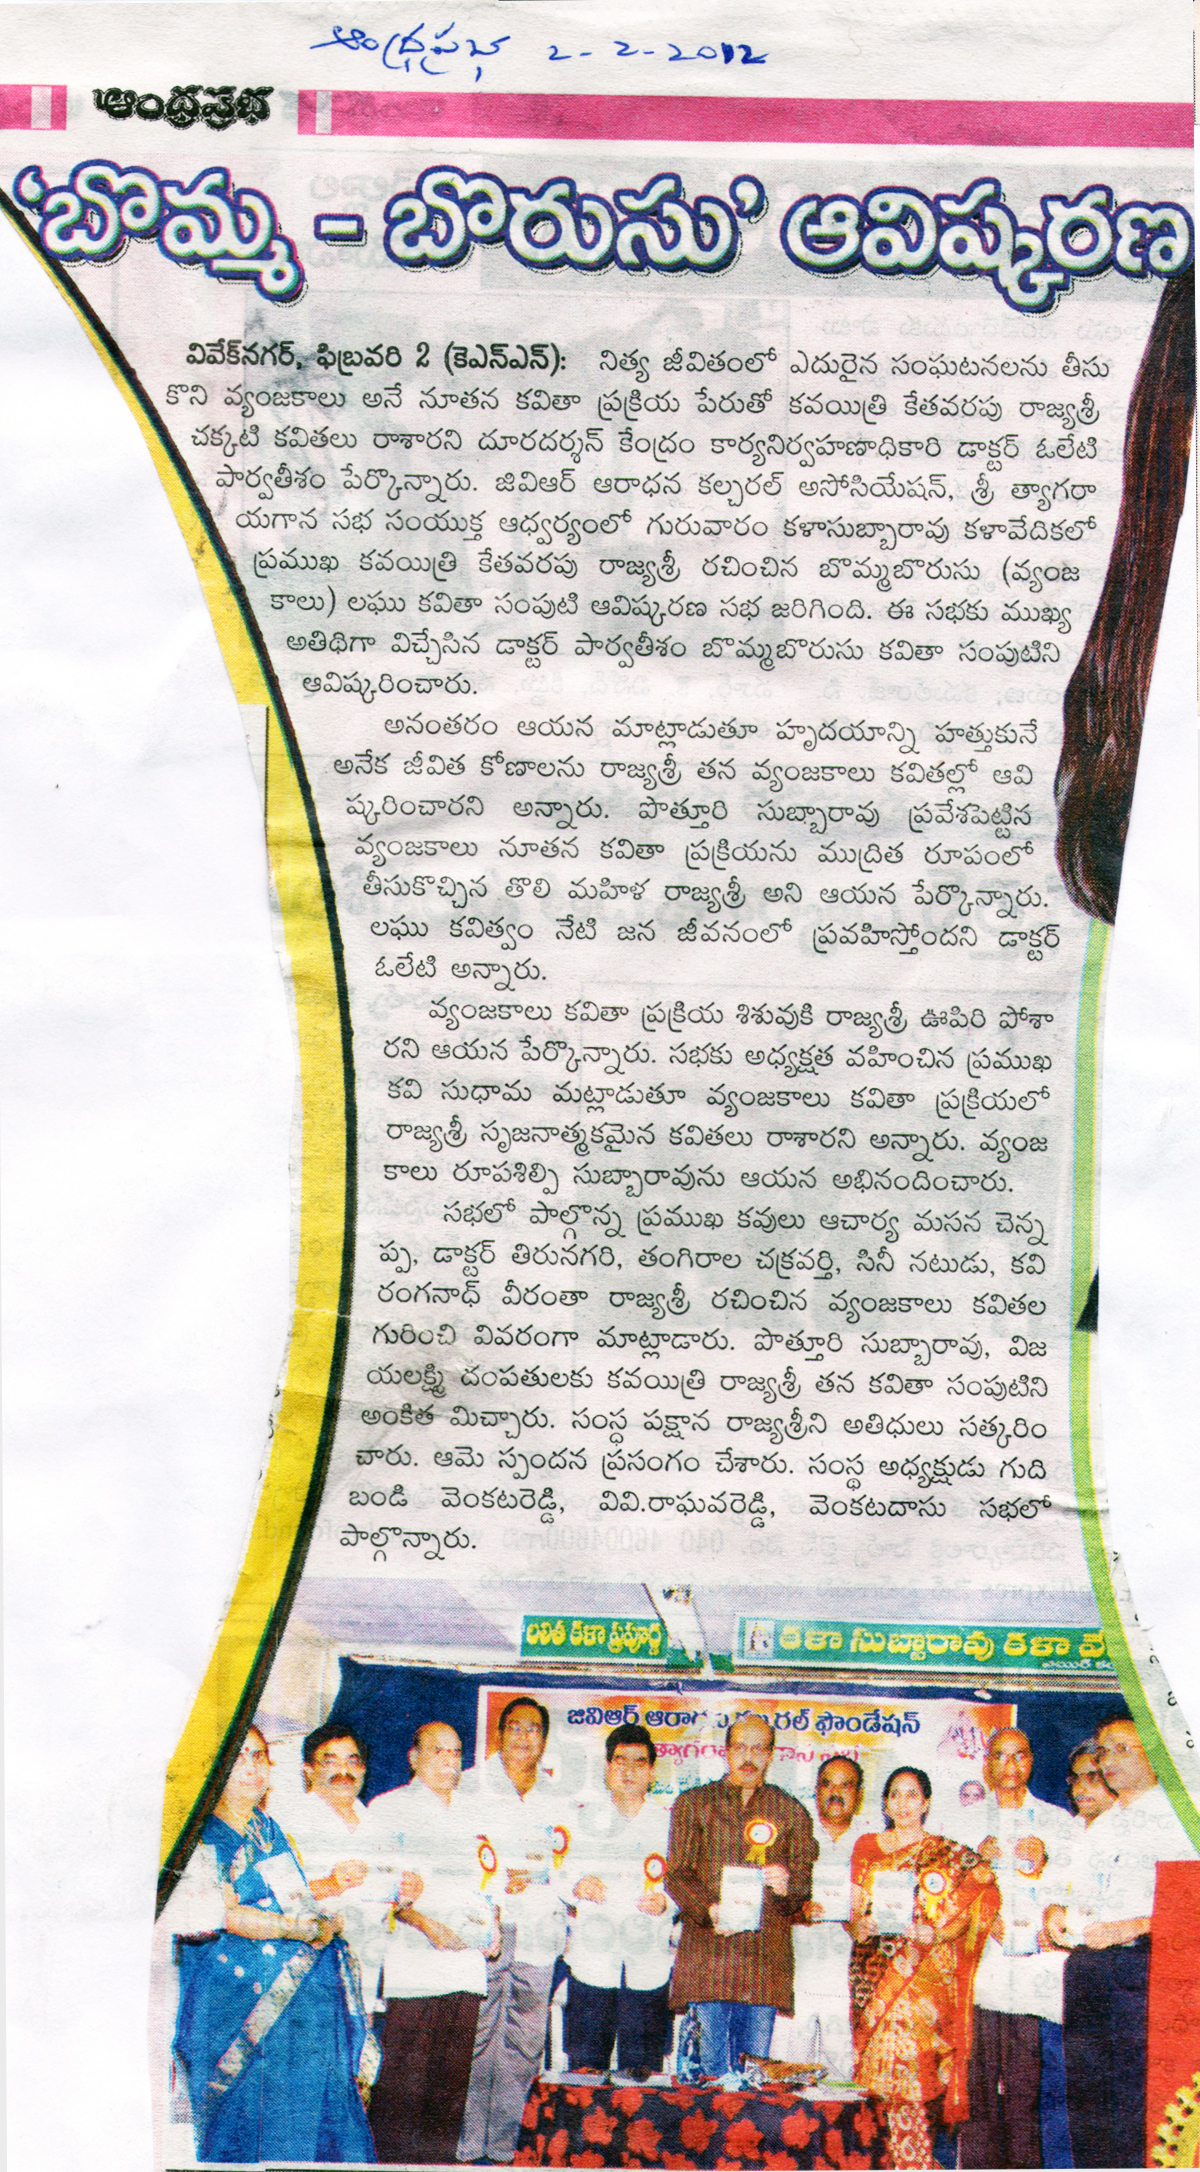 ఆంధ్రప్రభ 2-2-2012
ఆంధ్రప్రభ
'బొమ్మ - బొరుసు' ఆవిష్కరణ
వివేక్‌నగర్, ఫిబ్రవరి 2 (కెఎన్ఎన్): నిత్య జీవితంలో ఎదురైన సంఘటనలను తీసు
కొని వ్యంజకాలు అనే నూతన కవితా ప్రక్రియ పేరుతో కవయిత్రి కేతవరపు రాజ్యశ్రీ
చక్కటి కవితలు రాశారని దూరదర్శన్ కేంద్రం కార్యనిర్వహణాధికారి డాక్టర్ ఓలేటి
పార్వతీశం పేర్కొన్నారు. జివిఆర్ ఆరాధన కల్చరల్ అసోసియేషన్, శ్రీ త్యాగరా
యగాన సభ సంయుక్త ఆధ్వర్యంలో గురువారం కళాసుబ్బారావు కళావేదికలో
ప్రముఖ కవయిత్రి కేతవరపు రాజ్యశ్రీ రచించిన బొమ్మబొరుసు (వ్యంజ
కాలు) లఘు కవితా సంపుటి ఆవిష్కరణ సభ జరిగింది. ఈ సభకు ముఖ్య
అతిథిగా విచ్చేసిన డాక్టర్ పార్వతీశం బొమ్మబొరుసు కవితా సంపుటిని
ఆవిష్కరించారు.
అనంతరం ఆయన మాట్లాడుతూ హృదయాన్ని హత్తుకునే
అనేక జీవిత కోణాలను రాజ్యశ్రీ తన వ్యంజకాలు కవితల్లో ఆవి
ష్కరించారని అన్నారు. పొత్తూరి సుబ్బారావు ప్రవేశపెట్టిన
వ్యంజకాలు నూతన కవితా ప్రక్రియను ముద్రిత రూపంలో
తీసుకొచ్చిన తొలి మహిళ రాజ్యశ్రీ అని ఆయన పేర్కొన్నారు.
లఘు కవిత్వం నేటి జన జీవనంలో ప్రవహిస్తోందని డాక్టర్
ఓలేటి అన్నారు.
వ్యంజకాలు కవితా ప్రక్రియ శిశువుకి రాజ్యశ్రీ ఊపిరి పోశా
రని ఆయన పేర్కొన్నారు. సభకు అధ్యక్షత వహించిన ప్రముఖ
కవి సుధామ మట్లాడుతూ వ్యంజకాలు కవితా ప్రక్రియలో
రాజ్యశ్రీ సృజనాత్మకమైన కవితలు రాశారని అన్నారు. వ్యంజ
కాలు రూపశిల్పి సుబ్బారావును ఆయన అభినందించారు.
సభలో పాల్గొన్న ప్రముఖ కవులు ఆచార్య మసన చెన్న
ప్ప, డాక్టర్ తిరునగరి, తంగిరాల చక్రవర్తి, సినీ నటుడు, కవి
రంగనాధ్ వీరంతా రాజ్యశ్రీ రచించిన వ్యంజకాలు కవితల
గురించి వివరంగా మాట్లాడారు. పొత్తూరి సుబ్బారావు, విజ
యలక్ష్మి దంపతులకు కవయిత్రి రాజ్యశ్రీ తన కవితా సంపుటిని
అంకిత మిచ్చారు. సంస్థ పక్షాన రాజ్యశ్రీని అతిధులు సత్కరిం
చారు. ఆమె స్పందన ప్రసంగం చేశారు. సంస్థ అధ్యక్షుడు గుది
బండి వెంకటరెడ్డి, వివి.రాఘవరెడ్డి, వెంకటదాసు సభలో
పాల్గొన్నారు.
లలిత కళా ప్రపూర్ణ కళా సుబ్బారావు కళా వే
జివిఆర్ ఆరా రల్ ఫౌండేషన్